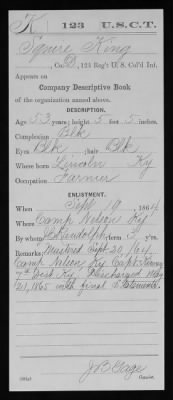 K | 123 | U.S.C.T.
Squire King
, Co. D, 123 Reg't U. S. Col'd Inf.
Appears on
Company Descriptive Book
of the organization named above.
DESCRIPTION.
Age 53 years; height 5 feet 5 inches.
Complexion Blk
Eyes Blk; hair Blk
Where born Lincoln Ky
Occupation Farmer
ENLISTMENT.
When Sept 19, 1864
Where Camp Nelson Ky
By whom Randolph; term 3 y'rs.
Remarks: Mustered Sept 20/64
Camp Nelson Ky Capt
7th Dist Ky Discharged May
21, 1865 with final Statements.
J B Gage
Copyist.